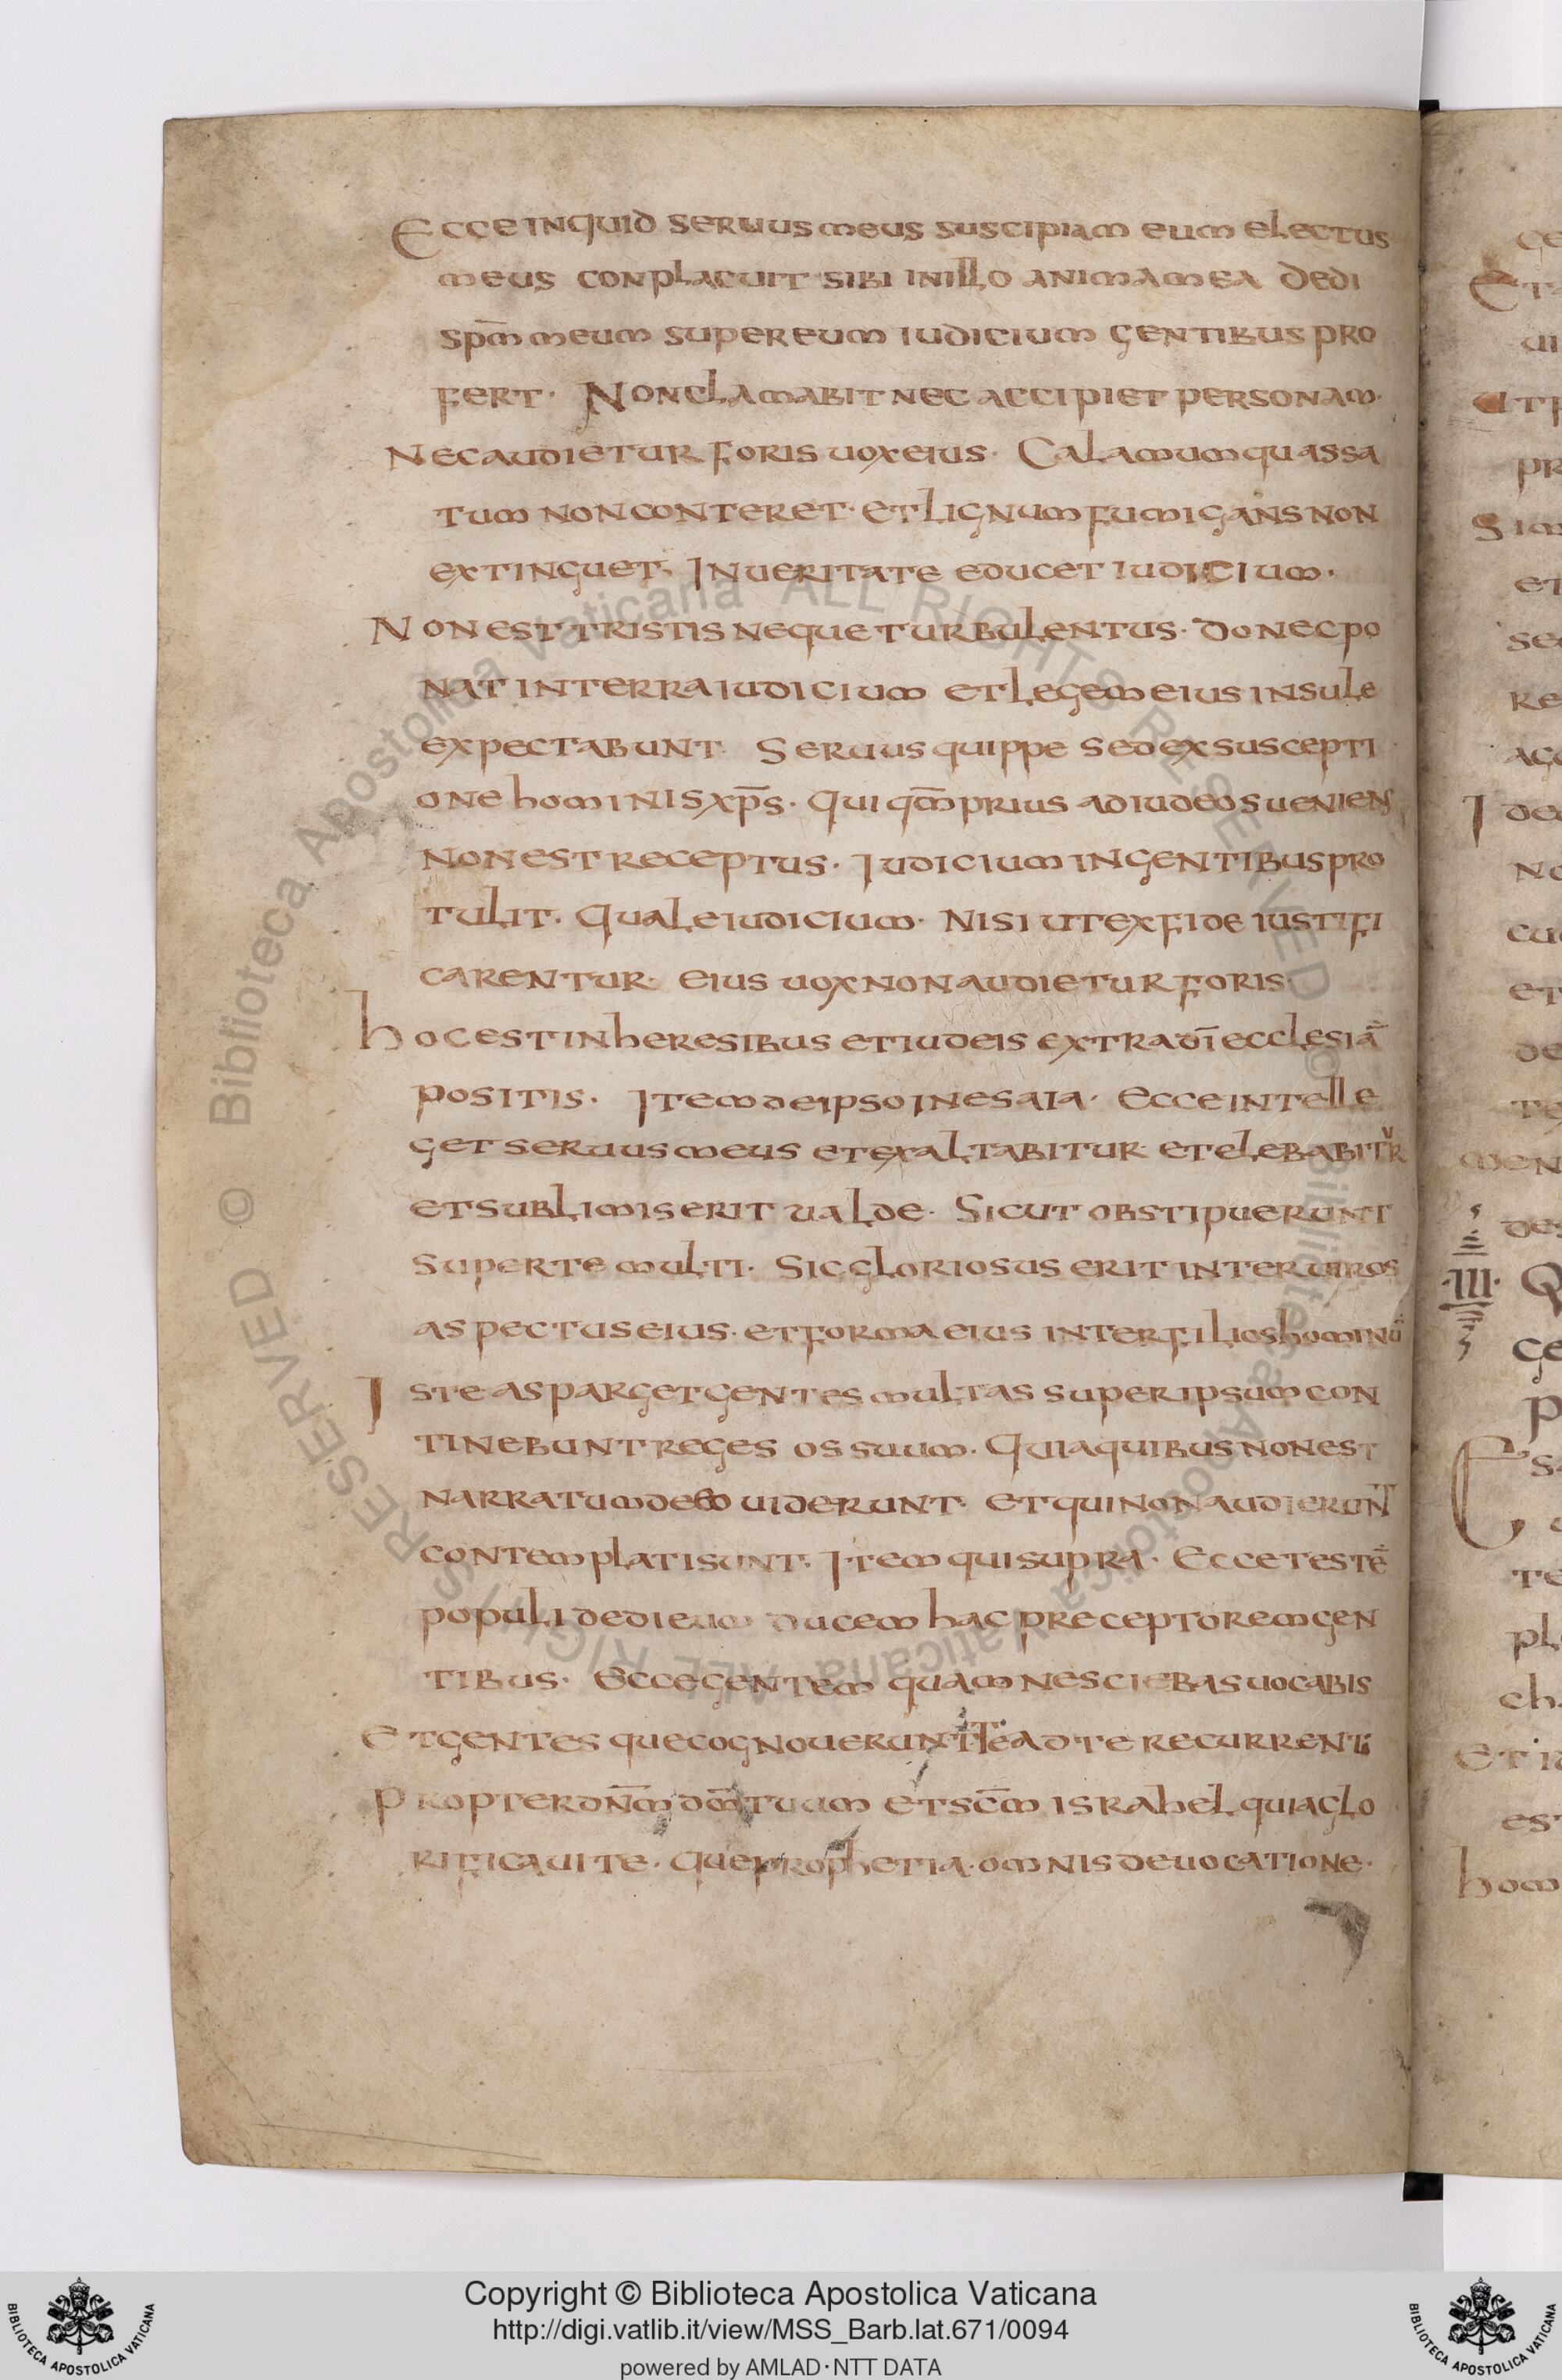 Ecce inquid seruus meus suscipiam eum electus
meus conplacuit sibi in illo anima mea Dedi
sp̅m meum super eum iudicium gentibus pro
fert· Non clamabit nec accipiet personam·
Nec audietur foris uox eius· Calamum quassa
tum non conteret· et lignum fumigans non
extinguet· In ueritate educet iudicium·
Non est tristis neque turbulentus· donec po
nat in terra iudicium et legem eius insule
expectabunt· Seruus quippe sed ex suscepti
one hominis xp̅s· qui qm̅ prius ad iudeos ueniens
non est receptus· Iudicium in gentibus pro
tulit· quale iudicium· nisi ut ex fide iustifi
carentur· eius uox non audietur foris·
hoc est in heresibus et iudeis extra di̅ ecclesia̅
positis· Item de ipso in esaia· Ecce intelle
get seruus meus et exaltabitur· et elebabitur
et sublimis erit ualde· Sicut obstipuerunt
super te multi· Sic gloriosus erit inter uiros
aspectus eius· et forma eius inter filios hominu̅
Iste asparget gentes multas super ipsum con
tinebunt reges os suum· Quia quibus non est
narratum de eo uiderunt· et qui non audierunt
contemplati sunt· Item qui supra· Ecce teste̅
populi dedi eum ducem hac preceptorem gen
tibus· Ecce gentem quam nesciebas uocabis
Et gentes que cognouerunt te ad te recurrent
Propter dn̅m dm̅ tuum et sc̅m israhel quia glo
rificaui te· que prophetia· omnis de uocatione·
·III·
Copyright © Biblioteca Apostolica Vaticana
http://digi.vatlib.it/view/MSS_Barb.lat.671/0094
powered by AMLAD·NTT DATA
BIBLIOTECA APOSTOLICA VATICANA
BIBLIOTECA APOSTOLICA VATICANA
© Biblioteca Apostolica Vaticana ALL RIGHTS RESERVED
© Biblioteca Apostolica Vaticana ALL RIGHTS RESERVED